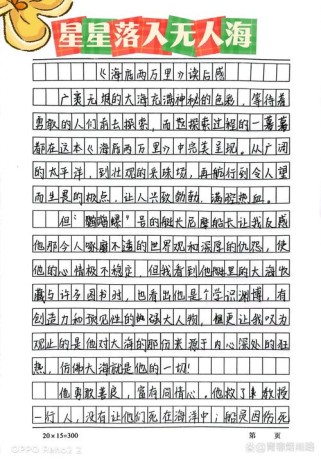 星星落入无人海
《海底两万里》读后感
广袤无垠的大海充满神秘的色彩，等待着
勇敢的人们前去探索，而这探索过程的一幕幕
都在这本《海底两万里》中完美呈现。从广阔
的太平洋，到壮观的采珠场，再航行到令人望
而生畏的极点，不让人兴致勃勃，满腔热血。
但"鹦鹉螺"号的艇长尼摩船长让我反感
他那令人琢磨不透的世界观和深厚的仇怨，使
他的心情极不稳定，但我看到他艇里的大海收
藏与许多图书时，也看出他是个学识渊博，有
创造力和预见性的强大人物，但更让我叹为
观止的是他对大海的那份来源于内心深处的狂
热，仿佛大海就是他的一切！
他勇敢善良，富有同情心。他救了教授
一行人，没有让他们死在海洋中；船员因伤死
20×15=300
第 页
OPPO Reno2 Z